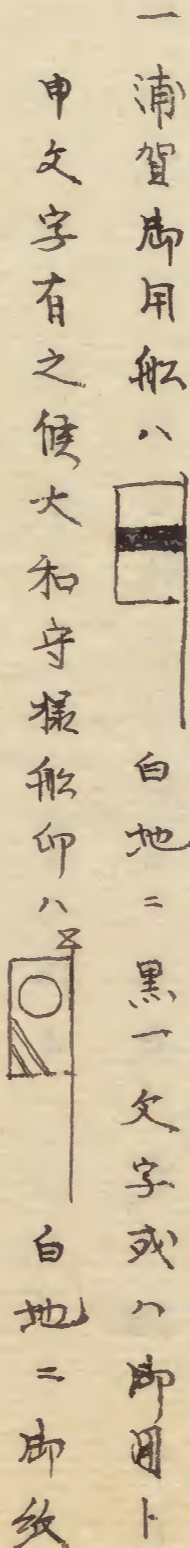 一 浦賀御用船ハ 白地ニ黒一文字或ハ御用ト
申文字有之候大和守様船印ハ 白地ニ御紋